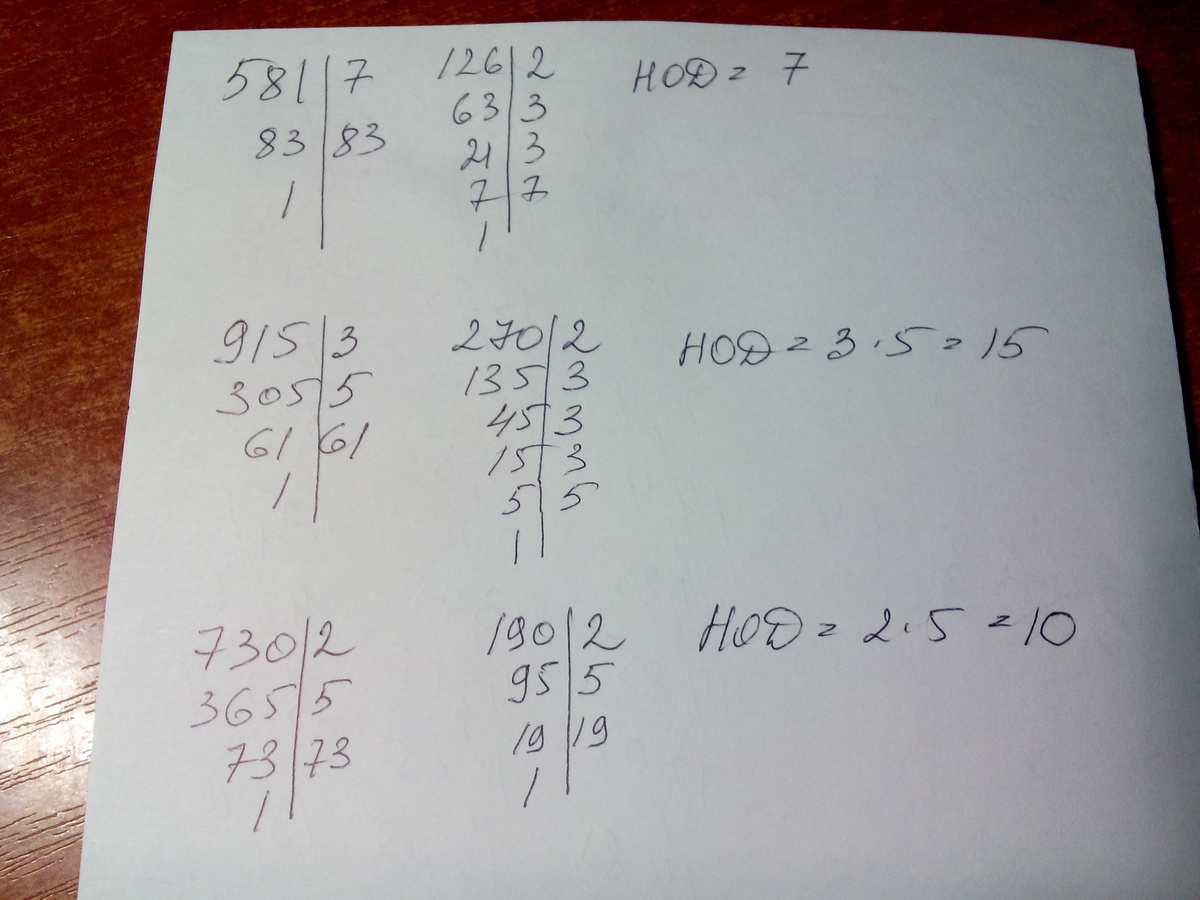 581|7 126|2 НОД = 7
83|83 63|3
1| 21|3
7|7
1
915|3 270|2 НОД = 3·5 = 15
305|5 135|3
61|61 45|3
1| 15|3
5|5
1|
730|2 190|2 НОД = 2·5 = 10
365|5 95|5
73|73 19|19
1| 1|